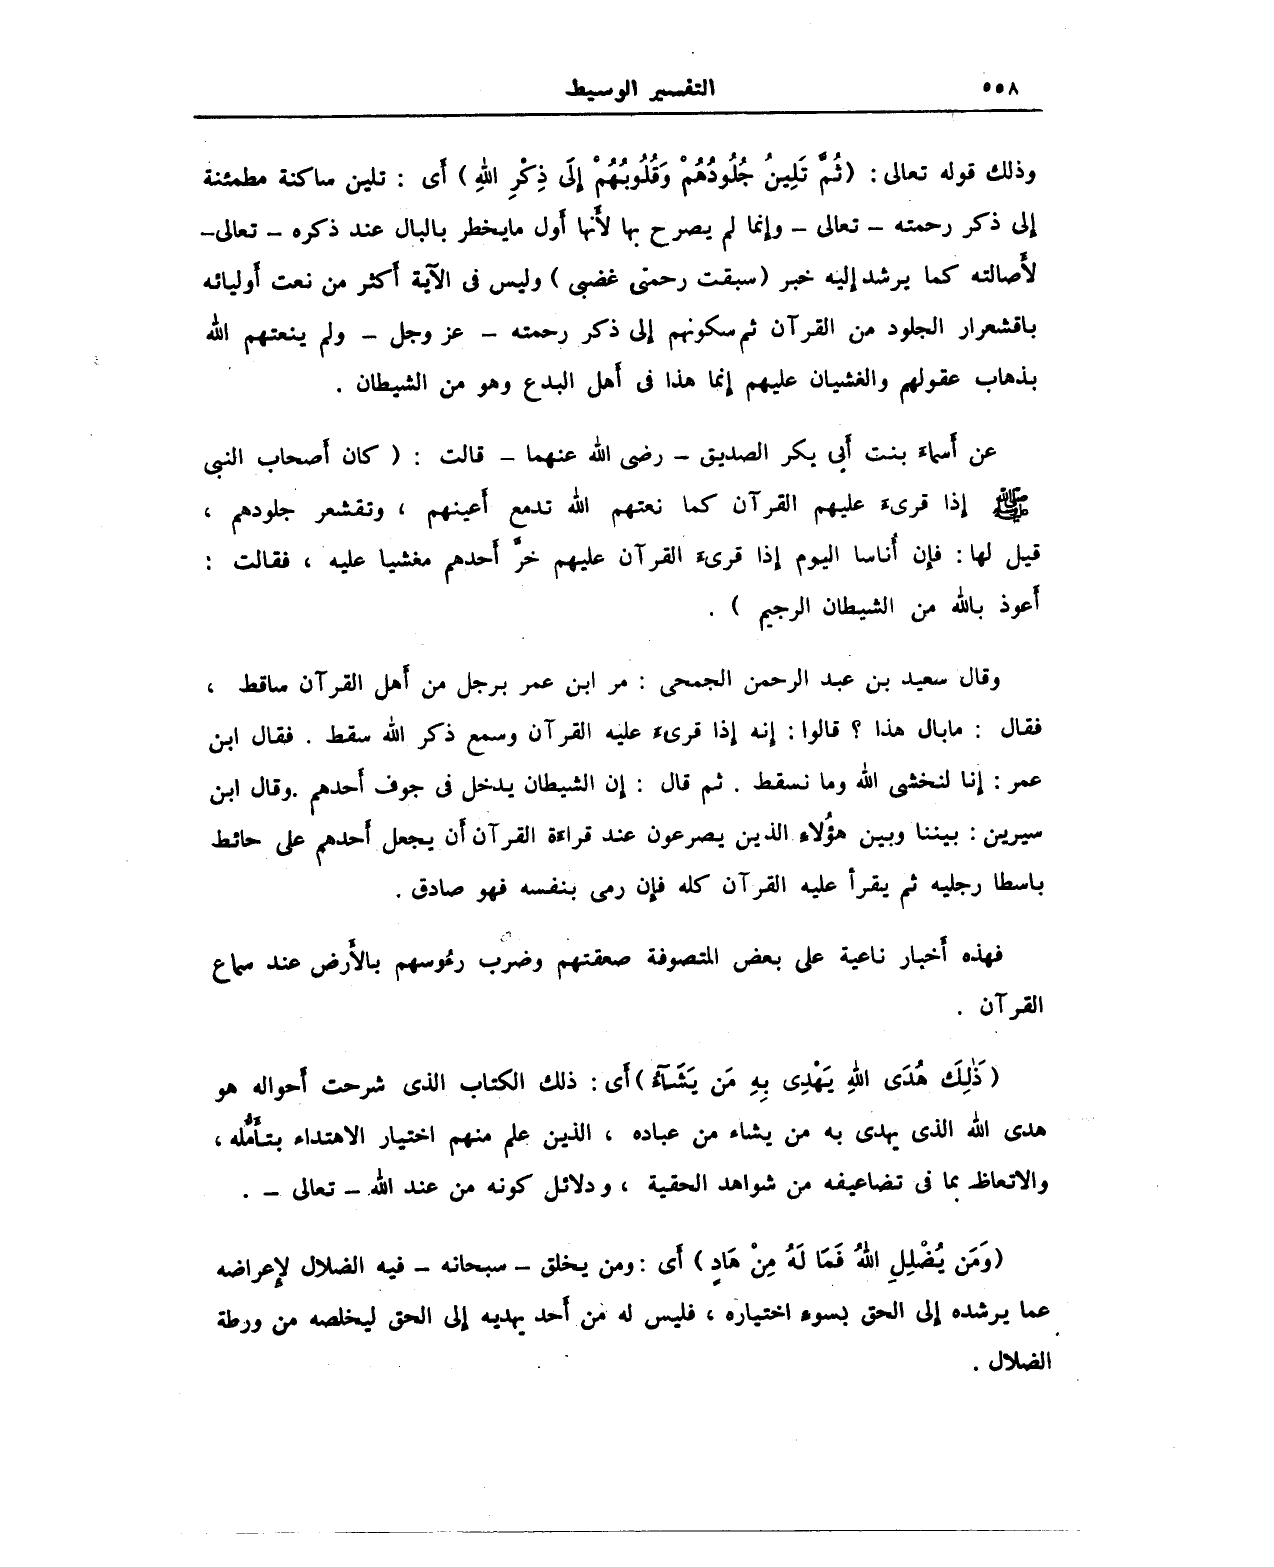 ٥٥٨ التفسير الوسيط
وذلك قوله تعالى : (ثُمَّ تَلِينُ جُلُودُهُمْ وَقُلُوبُهُمْ إِلَى ذِكْرِ اللهِ) أَى : تلين ساكنة مطمئنة
إلى ذكر رحمته – تعالى – وإنما لم يصرح بها لأَنها أَول مايخطر بالبال عند ذكره – تعالى–
لأَصالته كما يرشد إليه خبر (سبقت رحمتى غضبى) وليس فى الآية أَكثر من نعت أَوليائه
باقشعرار الجلود من القرآن ثم سكونهم إلى ذكر رحمته – عز وجل – ولم ينعتهم الله
بذهاب عقولهم والغشيان عليهم إنما هذا فى أَهل البدع وهو من الشيطان .
عن أَسماءَ بنت أَبى بكر الصديق – رضى الله عنهما – قالت : ( كان أَصحاب النبى
ﷺ إذا قرىءَ عليهم القرآن كما نعتهم الله تدمع أَعينهم ، وتقشعر جلودهم ،
قيل لها : فإن أُناسا اليوم إذا قرىءَ القرآن عليهم خرَّ أَحدهم مغشيا عليه ، فقالت :
أَعوذ بالله من الشيطان الرجيم ) .
وقال سعيد بن عبد الرحمن الجمحى : مر ابن عمر برجل من أَهل القرآن ساقط ،
فقال : مابال هذا ؟ قالوا : إنه إذا قرىءَ عليه القرآن وسمع ذكر الله سقط . فقال ابن
عمر : إنا لنخشى الله وما نسقط . ثم قال : إن الشيطان يدخل فى جوف أَحدهم .وقال ابن
سيرين : بيننا وبين هؤُلاءِ الذين يصرعون عند قراءَة القرآن أَن يجعل أَحدهم على حائط
باسطا رجليه ثم يقرأ عليه القرآن كله فإن رمى بنفسه فهو صادق .
فهذه أَخبار ناعية على بعض المتصوفة صعقتهم وضرب رءُوسهم بالأَرض عند سماع
القرآن .
( ذَٰلِكَ هُدَى اللهِ يَهْدِى بِهِ مَن يَشَآءُ ) أَى : ذلك الكتاب الذى شرحت أَحواله هو
هدى الله الذى يهدى به من يشاء من عباده ، الذين علم منهم اختيار الاهتداء بتأَمُّله ،
والاتعاظ بما فى تضاعيفه من شواهد الحقية ، ودلائل كونه من عند الله – تعالى – .
(وَمَن يُضْلِلِ اللهُ فَمَا لَهُ مِنْ هَادٍ) أَى : ومن يخلق – سبحانه – فيه الضلال لإِعراضه
عما يرشده إلى الحق بسوء اختياره ، فليس له من أَحد يهديه إلى الحق ليخلصه من ورطة
الضلال .